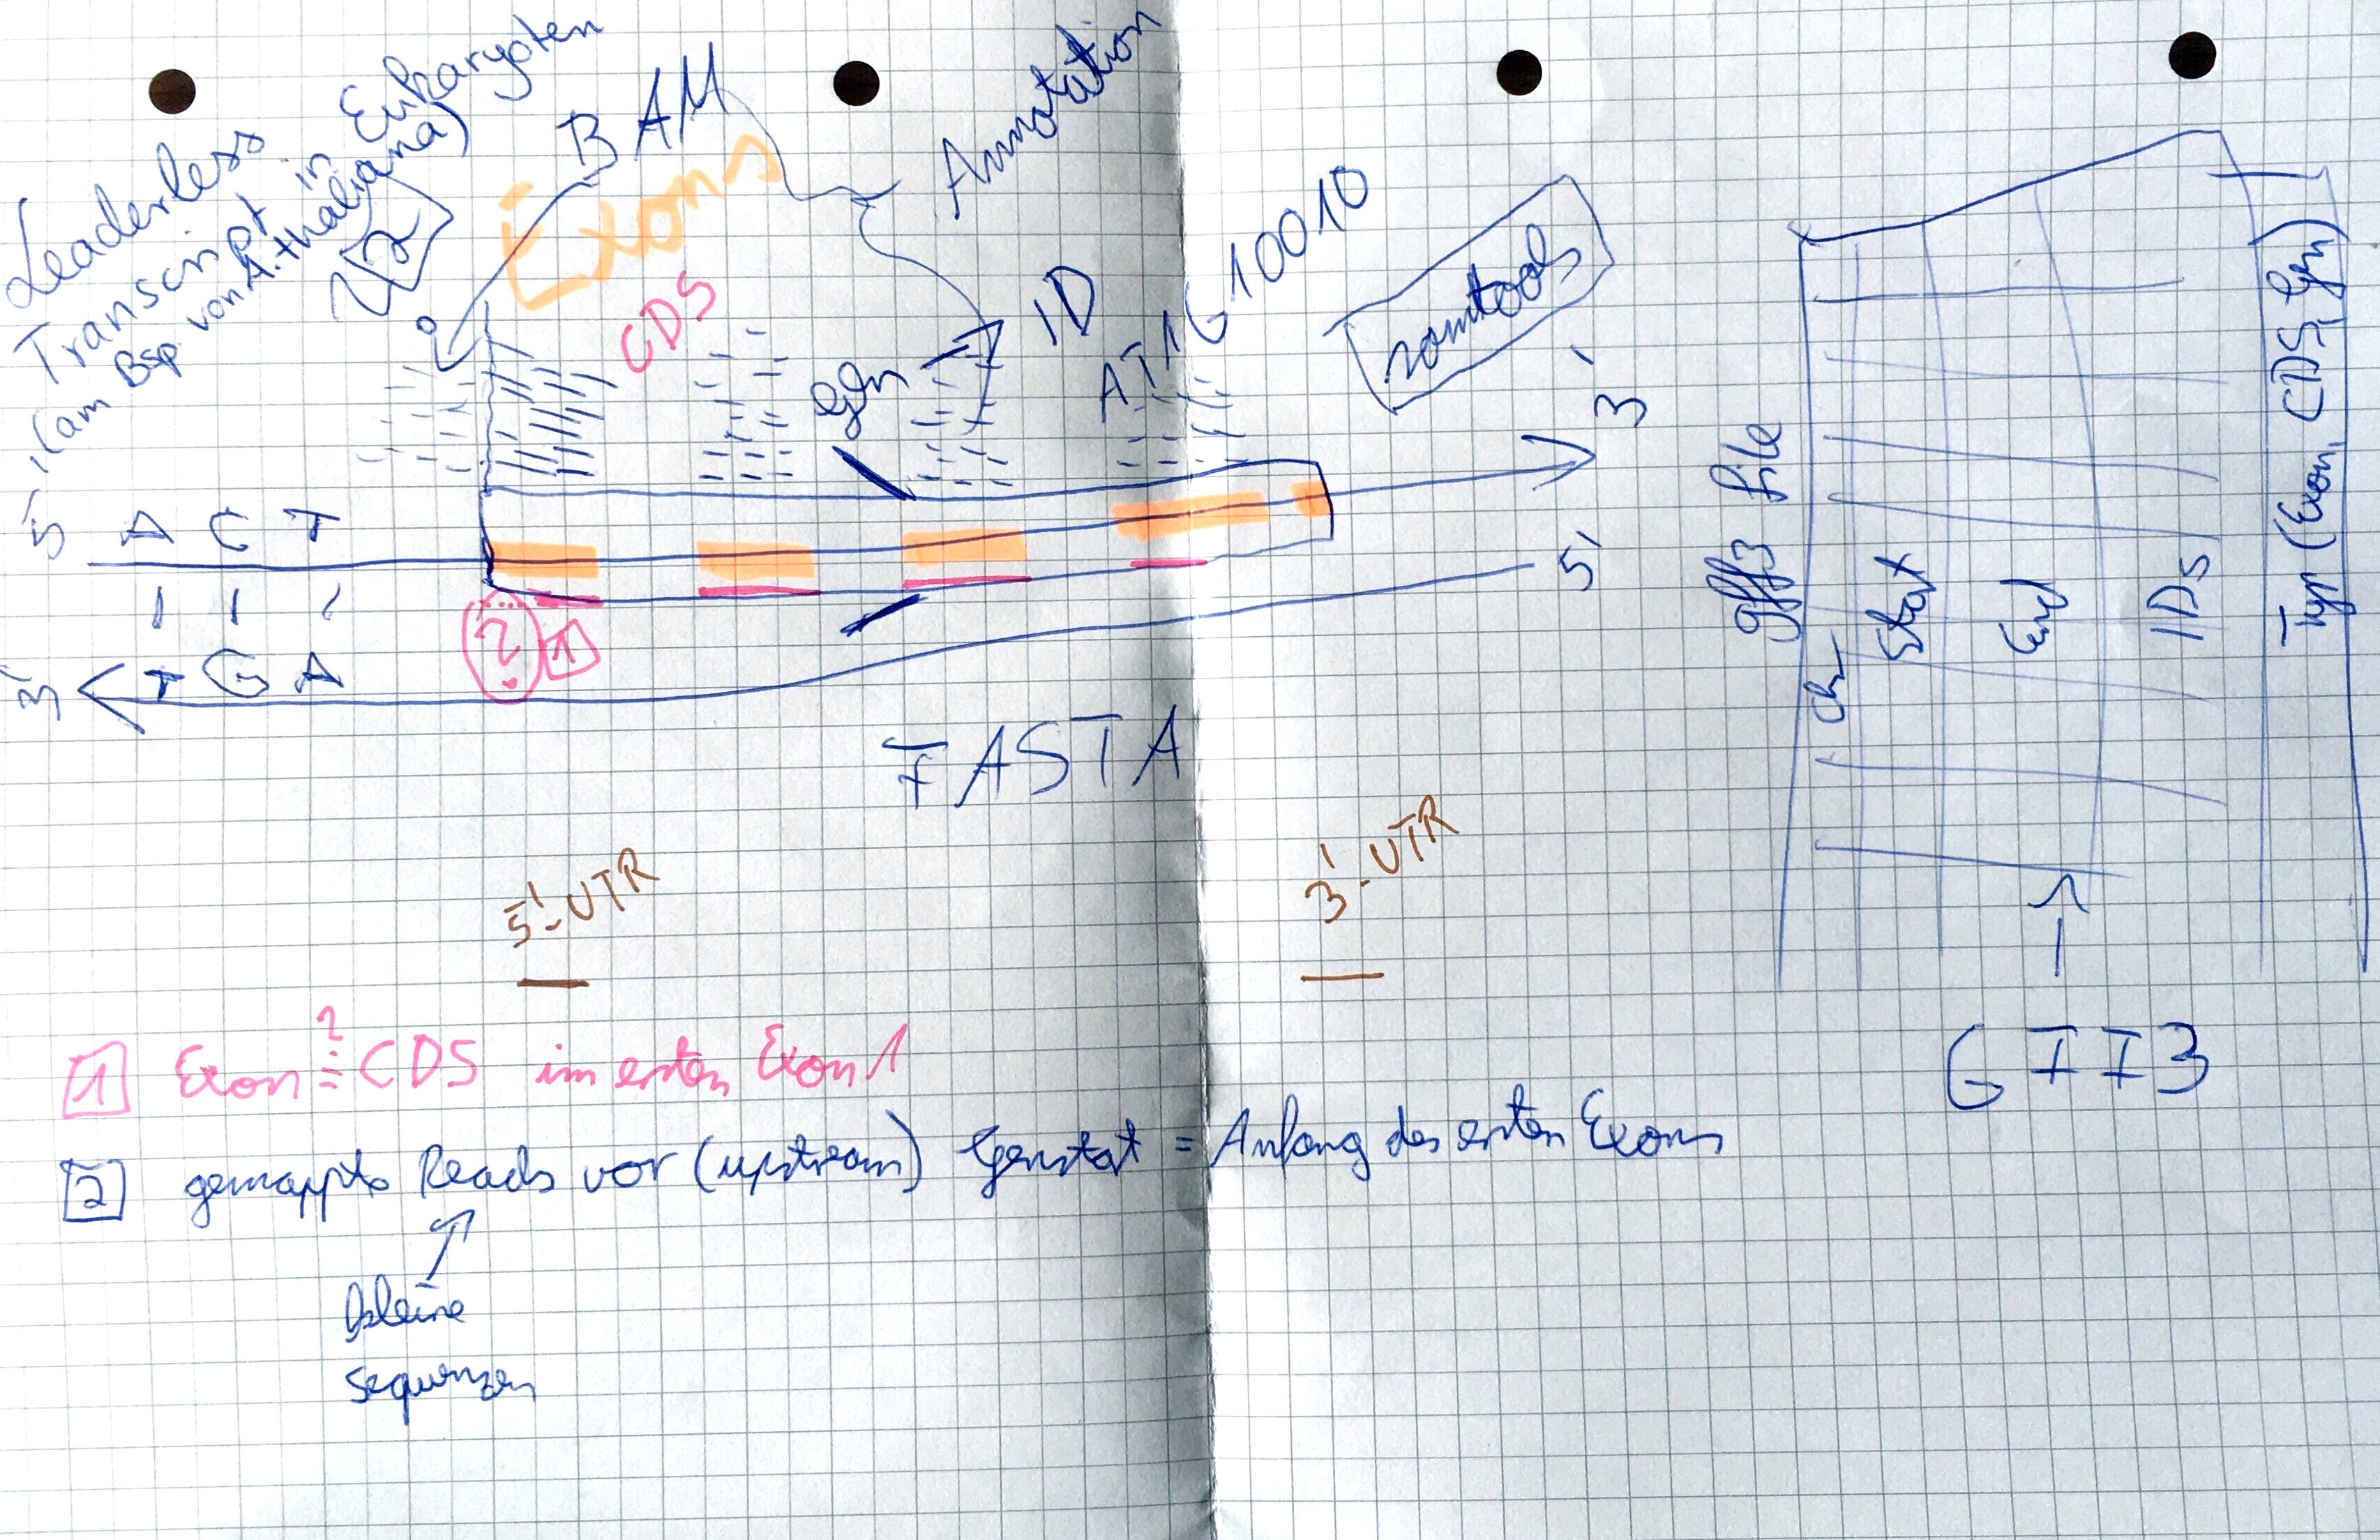 Leaderless
Transcript in Eukaryoten
(am Bsp. von A. thaliana)
2
BAM
Annotation
Exons
CDS
Gen
ID
AT1G10010
samtools
5' A C T
3'
3' T G A
5'
?
1
FASTA
5'-UTR
3'-UTR
gff3 file
Chr
Start
End
IDs
Typ (Exon, CDS, Gen)
GFF3
1 Exon ≟ CDS im ersten Exon!
2 gemappte Reads vor (upstream) Genstart = Anfang des ersten Exons
kleine
sequenzen